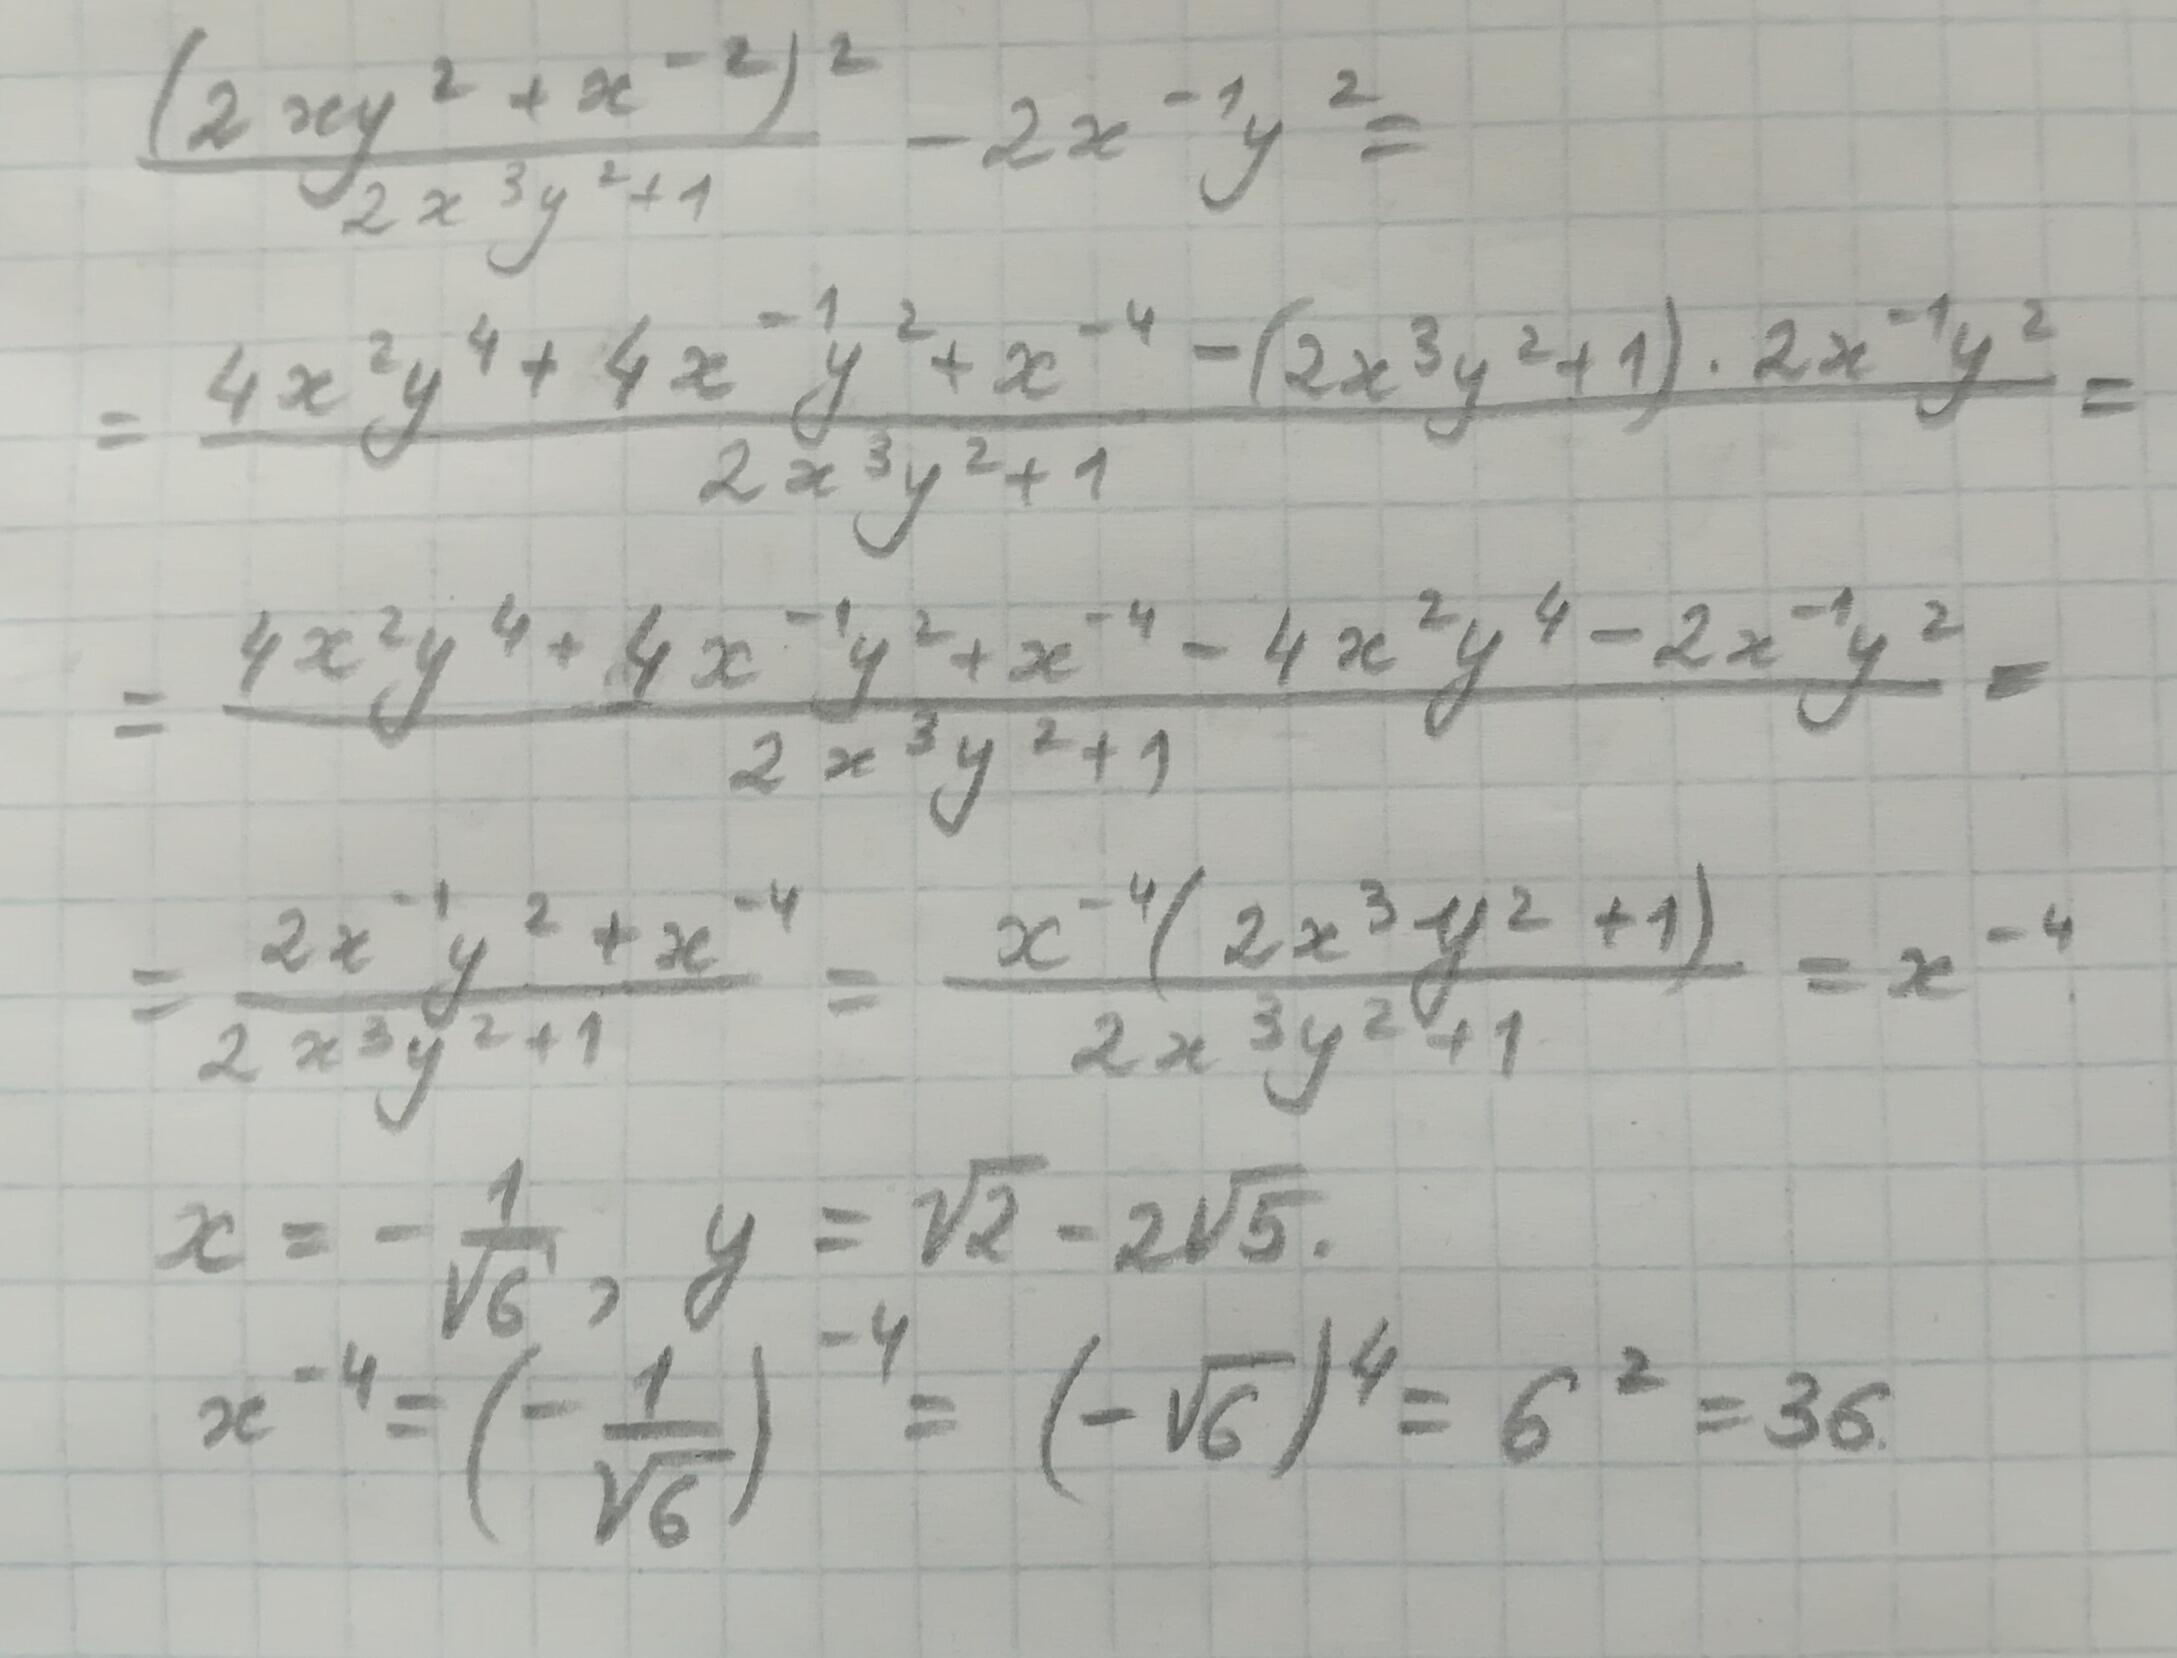 (2xy² + x⁻²)² / (2x³y² + 1) − 2x⁻¹y² =
= (4x²y⁴ + 4x⁻¹y² + x⁻⁴ − (2x³y² + 1) · 2x⁻¹y²) / (2x³y² + 1) =
= (4x²y⁴ + 4x⁻¹y² + x⁻⁴ − 4x²y⁴ − 2x⁻¹y²) / (2x³y² + 1) =
= (2x⁻¹y² + x⁻⁴) / (2x³y² + 1) = x⁻⁴(2x³y² + 1) / (2x³y² + 1) = x⁻⁴
x = −1/√6, y = √2 − 2√5.
x⁻⁴ = (−1/√6)⁻⁴ = (−√6)⁴ = 6² = 36.